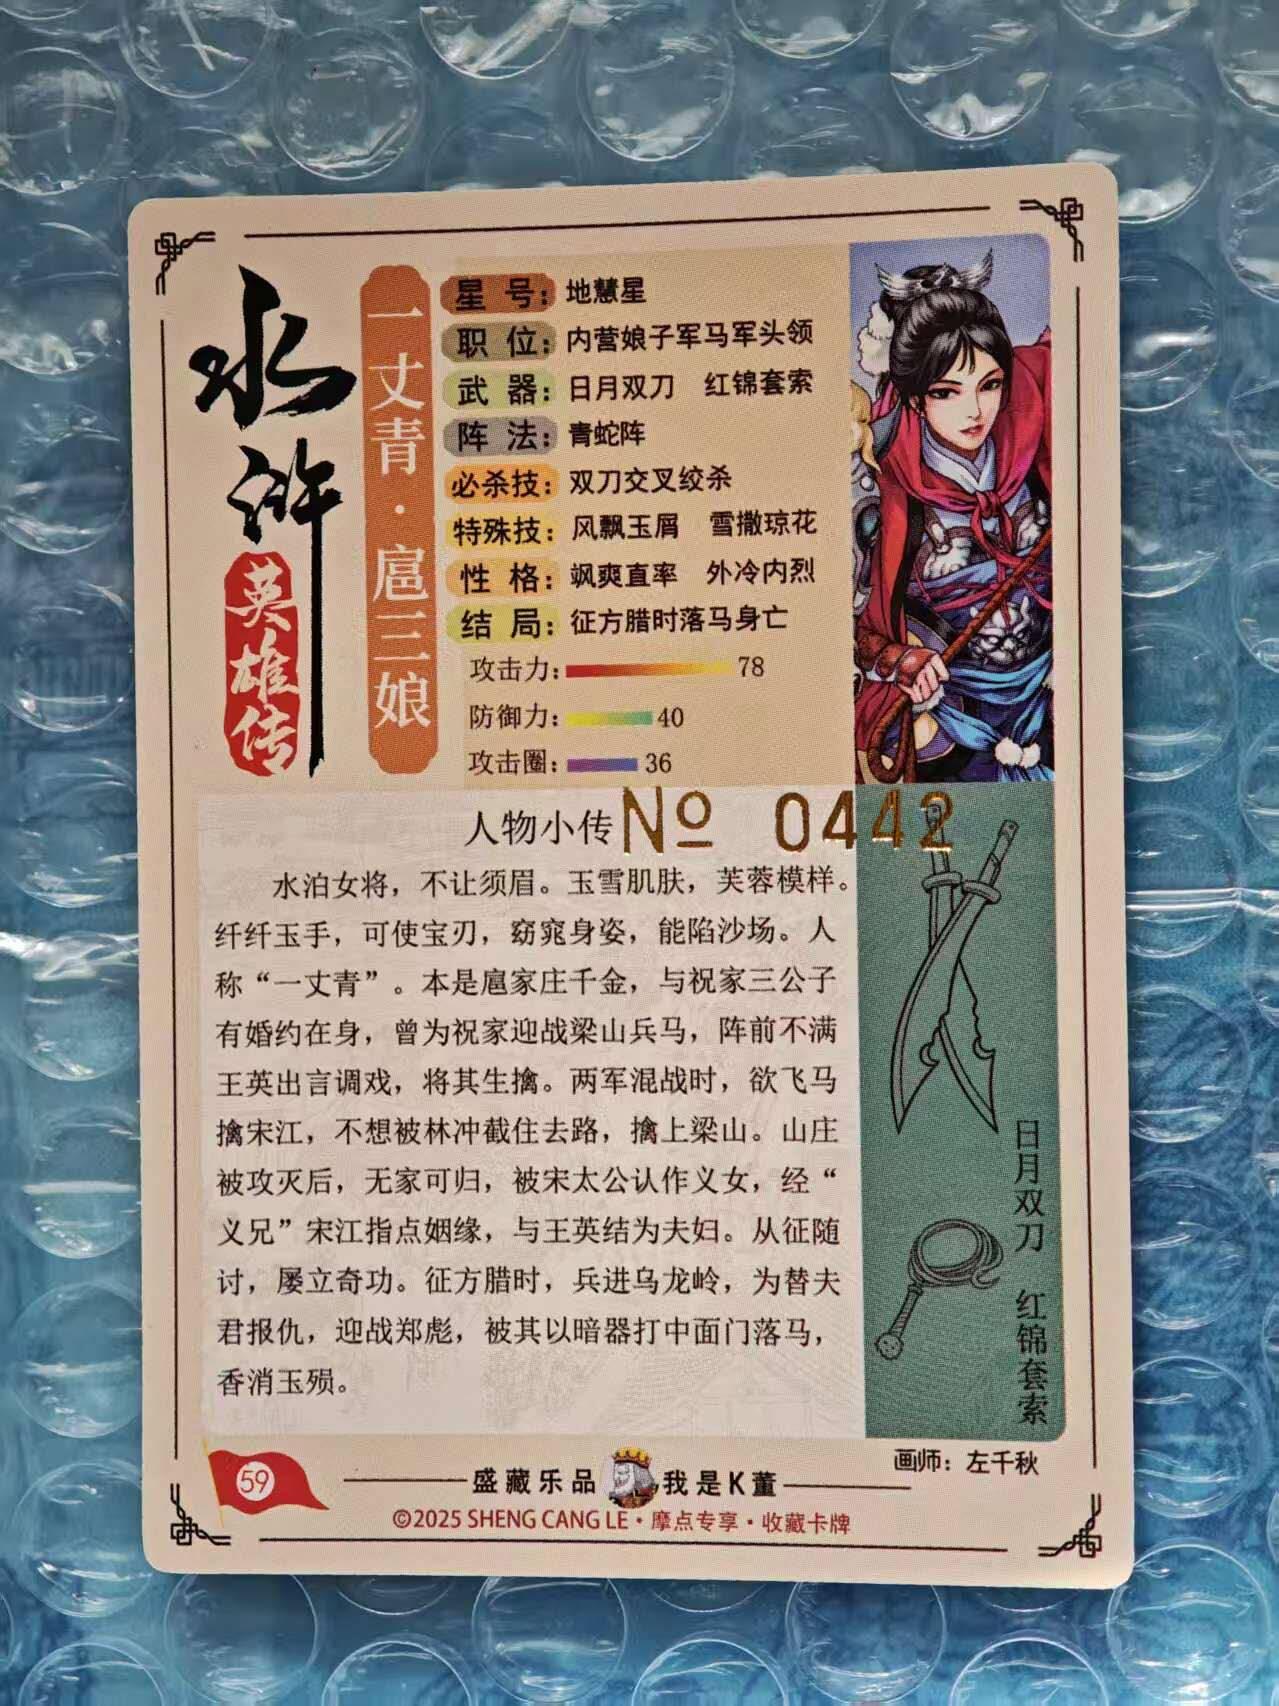 水浒
英雄传
一丈青·扈三娘
星号：地慧星
职位：内营娘子军马军头领
武器：日月双刀 红锦套索
阵法：青蛇阵
必杀技：双刀交叉绞杀
特殊技：风飘玉屑 雪撒琼花
性格：飒爽直率 外冷内烈
结局：征方腊时落马身亡
攻击力：78
防御力：40
攻击圈：36
人物小传
№ 0442
水泊女将，不让须眉。玉雪肌肤，芙蓉模样。
纤纤玉手，可使宝刃，窈窕身姿，能陷沙场。人
称“一丈青”。本是扈家庄千金，与祝家三公子
有婚约在身，曾为祝家迎战梁山兵马，阵前不满
王英出言调戏，将其生擒。两军混战时，欲飞马
擒宋江，不想被林冲截住去路，擒上梁山。山庄
被攻灭后，无家可归，被宋太公认作义女，经“
义兄”宋江指点姻缘，与王英结为夫妇。从征随
讨，屡立奇功。征方腊时，兵进乌龙岭，为替夫
君报仇，迎战郑彪，被其以暗器打中面门落马，
香消玉殒。
日月双刀 红锦套索
画师：左千秋
59
盛藏乐品 我是K董
©2025 SHENG CANG LE·摩点专享·收藏卡牌